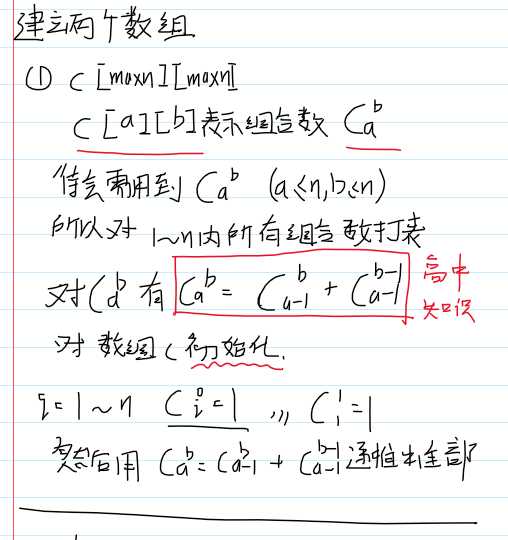 建立两个数组
① C [maxn][maxn]
C [a][b]表示组合数 C_a^b
待会需用到 C_a^b (a≤n,b≤n)
所以对 1~n内所有组合数打表
对C_a^b 有 C_a^b = C_{a-1}^b + C_{a-1}^{b-1} 高中知识
对 数组 C 初始化.
i=1~n C_i^0=1 ,,, C_1^1=1
然后用 C_a^b = C_{a-1}^b + C_{a-1}^{b-1} 递推出全部